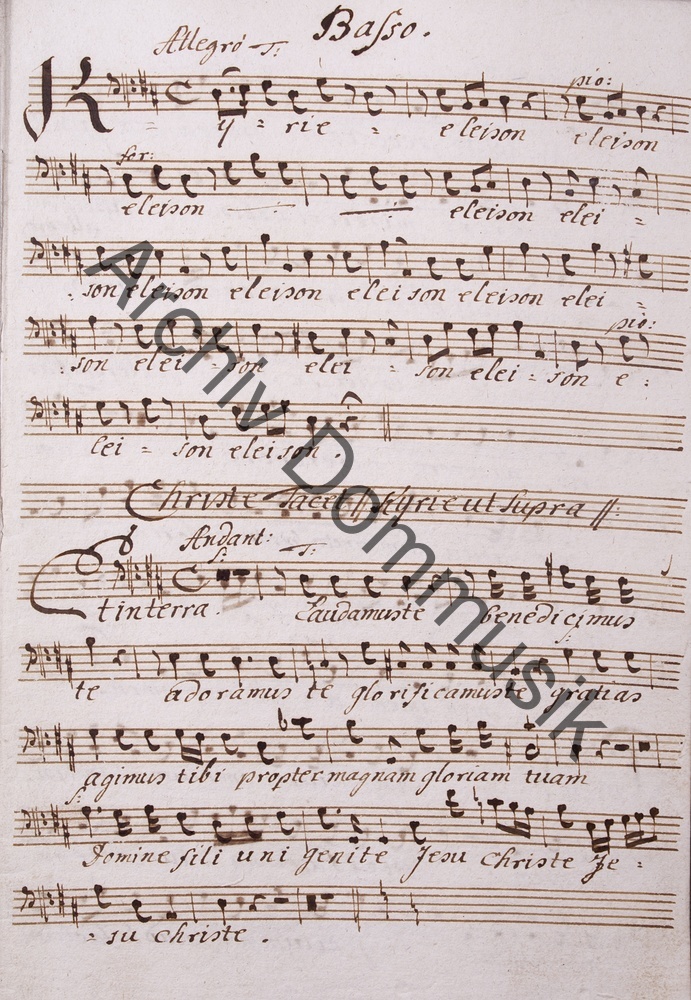 Basso.
Allegro T:
Kyrie eleison eleison
pio:
for:
eleison eleison elei =
son eleison eleison elei son eleison elei =
pio:
son elei = son elei = son elei = son e =
lei = son eleison.
Christe tacet // Kyrie ut supra //:
Andant:
S: T:
Et in terra. Laudamus te benedicimus
S:
te adoramus te glorificamus te gratias
agimus tibi propter magnam gloriam tuam
S:
Domine fili uni genite Jesu Christe Je =
= su Christe.
Archiv Dommusik